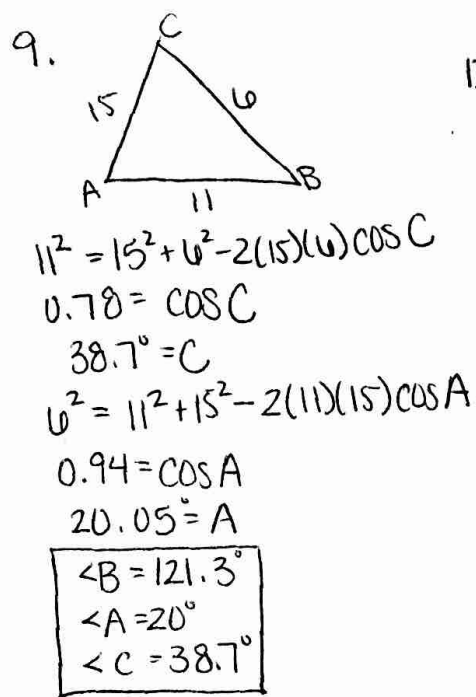 9.
C
15
6
A
B
11
11² = 15² + 6² - 2(15)(6) cos C
0.78 = cos C
38.7° = C
6² = 11² + 15² - 2(11)(15) cos A
0.94 = cos A
20.05° = A
<B = 121.3°
<A = 20°
<C = 38.7°